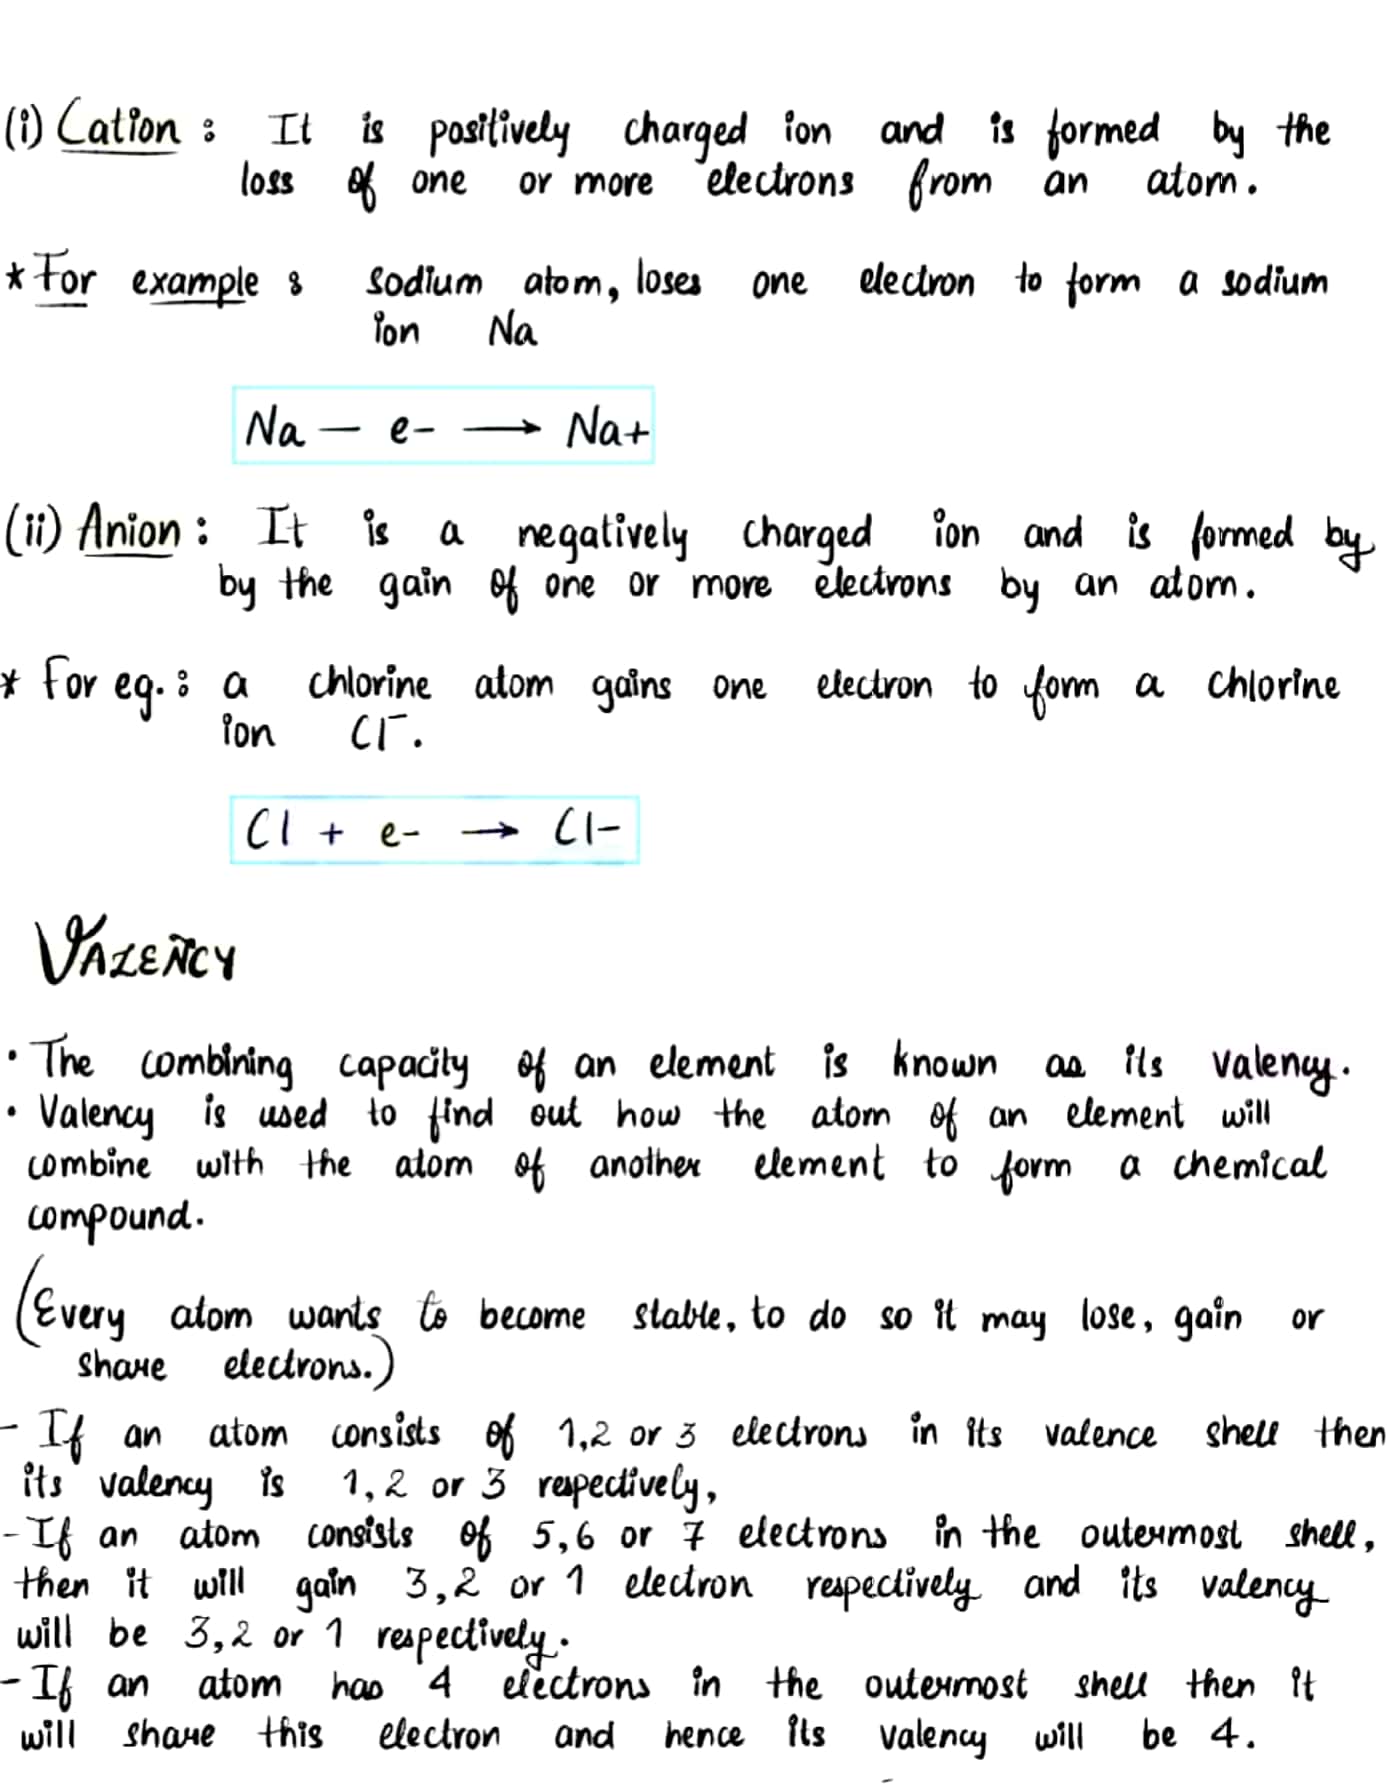 (i) Cation : It is positively charged ion and is formed by the
loss of one or more electrons from an atom.
* For example : sodium atom, loses one electron to form a sodium
ion Na
Na — e- ⟶ Na+
(ii) Anion : It is a negatively charged ion and is formed by
by the gain of one or more electrons by an atom.
* For eg. : a chlorine atom gains one electron to form a chlorine
ion Cl⁻.
Cl + e- ⟶ Cl-
VALENCY
• The combining capacity of an element is known as its valency.
• Valency is used to find out how the atom of an element will
combine with the atom of another element to form a chemical
compound.
(Every atom wants to become stable, to do so it may lose, gain or
share electrons.)
- If an atom consists of 1,2 or 3 electrons in its valence shell then
its valency is 1,2 or 3 respectively,
- If an atom consists of 5,6 or 7 electrons in the outermost shell,
then it will gain 3,2 or 1 electron respectively and its valency
will be 3,2 or 1 respectively.
- If an atom has 4 electrons in the outermost shell then it
will share this electron and hence its valency will be 4.